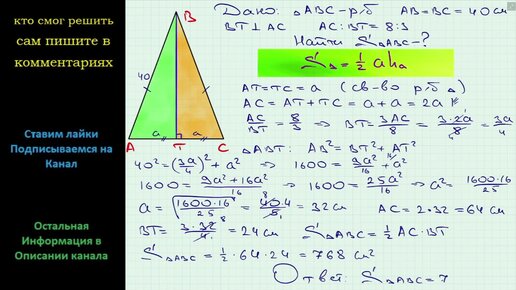 кто смог решить
сам пишите в
комментариях
Ставим лайки
Подписываемся на
Канал
Остальная
Информация в
Описании канала
B
40
a
a
A
T
C
Дано: △ABC - р/б AB = BC = 40 см
BT ⊥ AC AC:BT = 8:3
Найти S△ABC - ?
S△ = 1/2 a h_a
AT = TC = a (св-во р/б △)
AC = AT + TC = a + a = 2a
AC/BT = 8/3 ⇒ BT = 3AC/8 = 3·2a/8 4 = 3a/4
△ABT: AB² = BT² + AT²
40² = (3a/4)² + a² ⇒ 1600 = 9a²/16 + a² \16
1600 = 9a² + 16a²/16 ⇒ 1600 = 25a²/16 ⇒ a² = 1600·16/25
a = √1600·16/25 = 40·4/5 8 1 = 32 см AC = 2·32 = 64 см
BT = 3·32/4 8 1 = 24 см S△ABC = 1/2 AC·BT
S△ABC = 1/2·64·24 = 768 см²
Ответ: S△ABC = 7